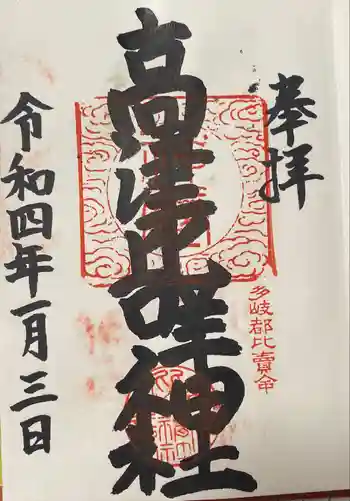 奉拝
多岐都比賣命
高津比咩神社
令和四年一月三日